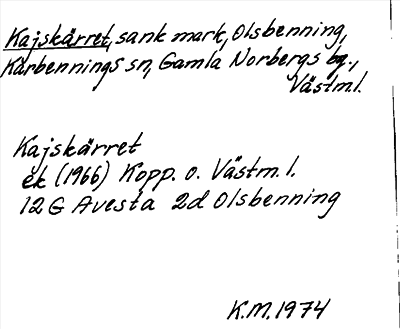 Kajskärret, sank mark, Olsbenning,
Kärbennings sn, Gamla Norbergs bg.,
Västml.
Kajskärret
ek (1966) Kopp. o. Västm. l.
12 G Avesta 2d Olsbenning
K.M. 1974